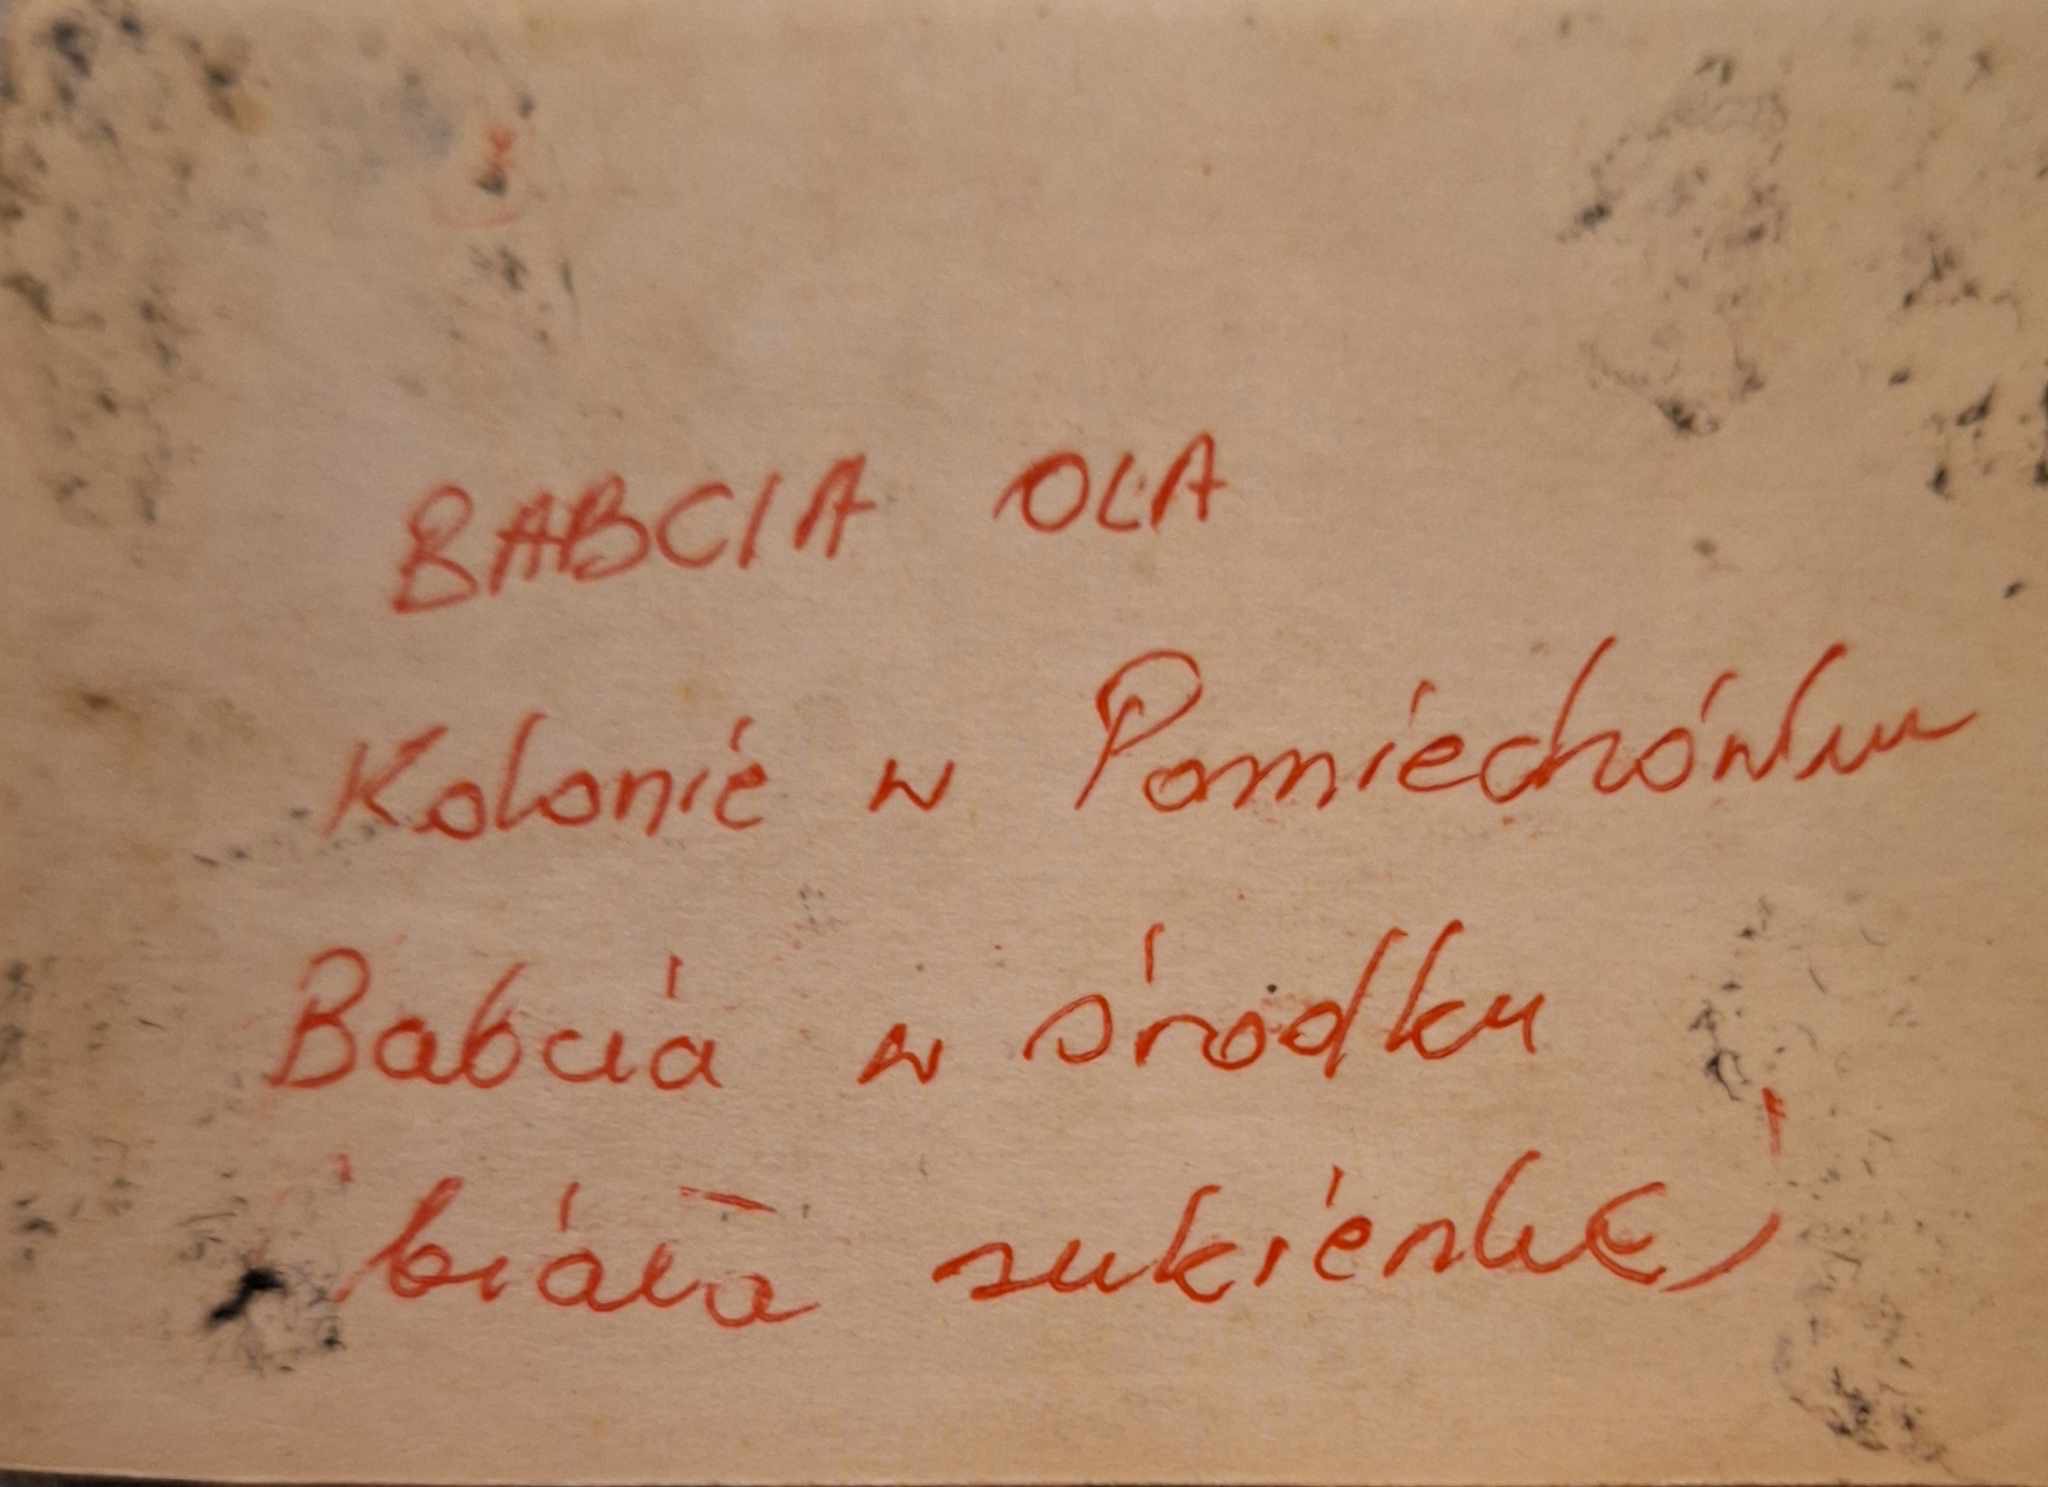 BABCIA OLA
Kolonie w Pomiechówku
Babcia w środku
biała sukienka